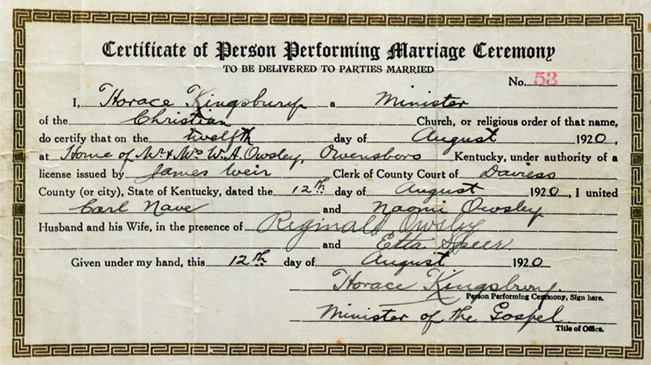 Certificate of Person Performing Marriage Ceremony
TO BE DELIVERED TO PARTIES MARRIED
No. 53
I, Horace Kingsbury a Minister
of the Christian Church, or religious order of that name,
do certify that on the twelfth day of August 1920,
at Home of Mr & Mrs W. A. Owsley, Owensboro Kentucky, under authority of a
license issued by James Weir Clerk of County Court of Daviess
County (or city), State of Kentucky, dated the 12th day of August 1920, I united
Carl Nave and Naomi Owsley
Husband and his Wife, in the presence of Reginald Owsley
and Etta Speer
Given under my hand, this 12th day of August 1920
Horace Kingsbury
Person Performing Ceremony, Sign here.
Minister of the Gospel
Title of Office.